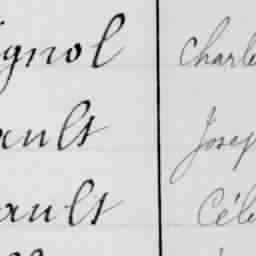 gnol Charle
ault Josep
ault Céle